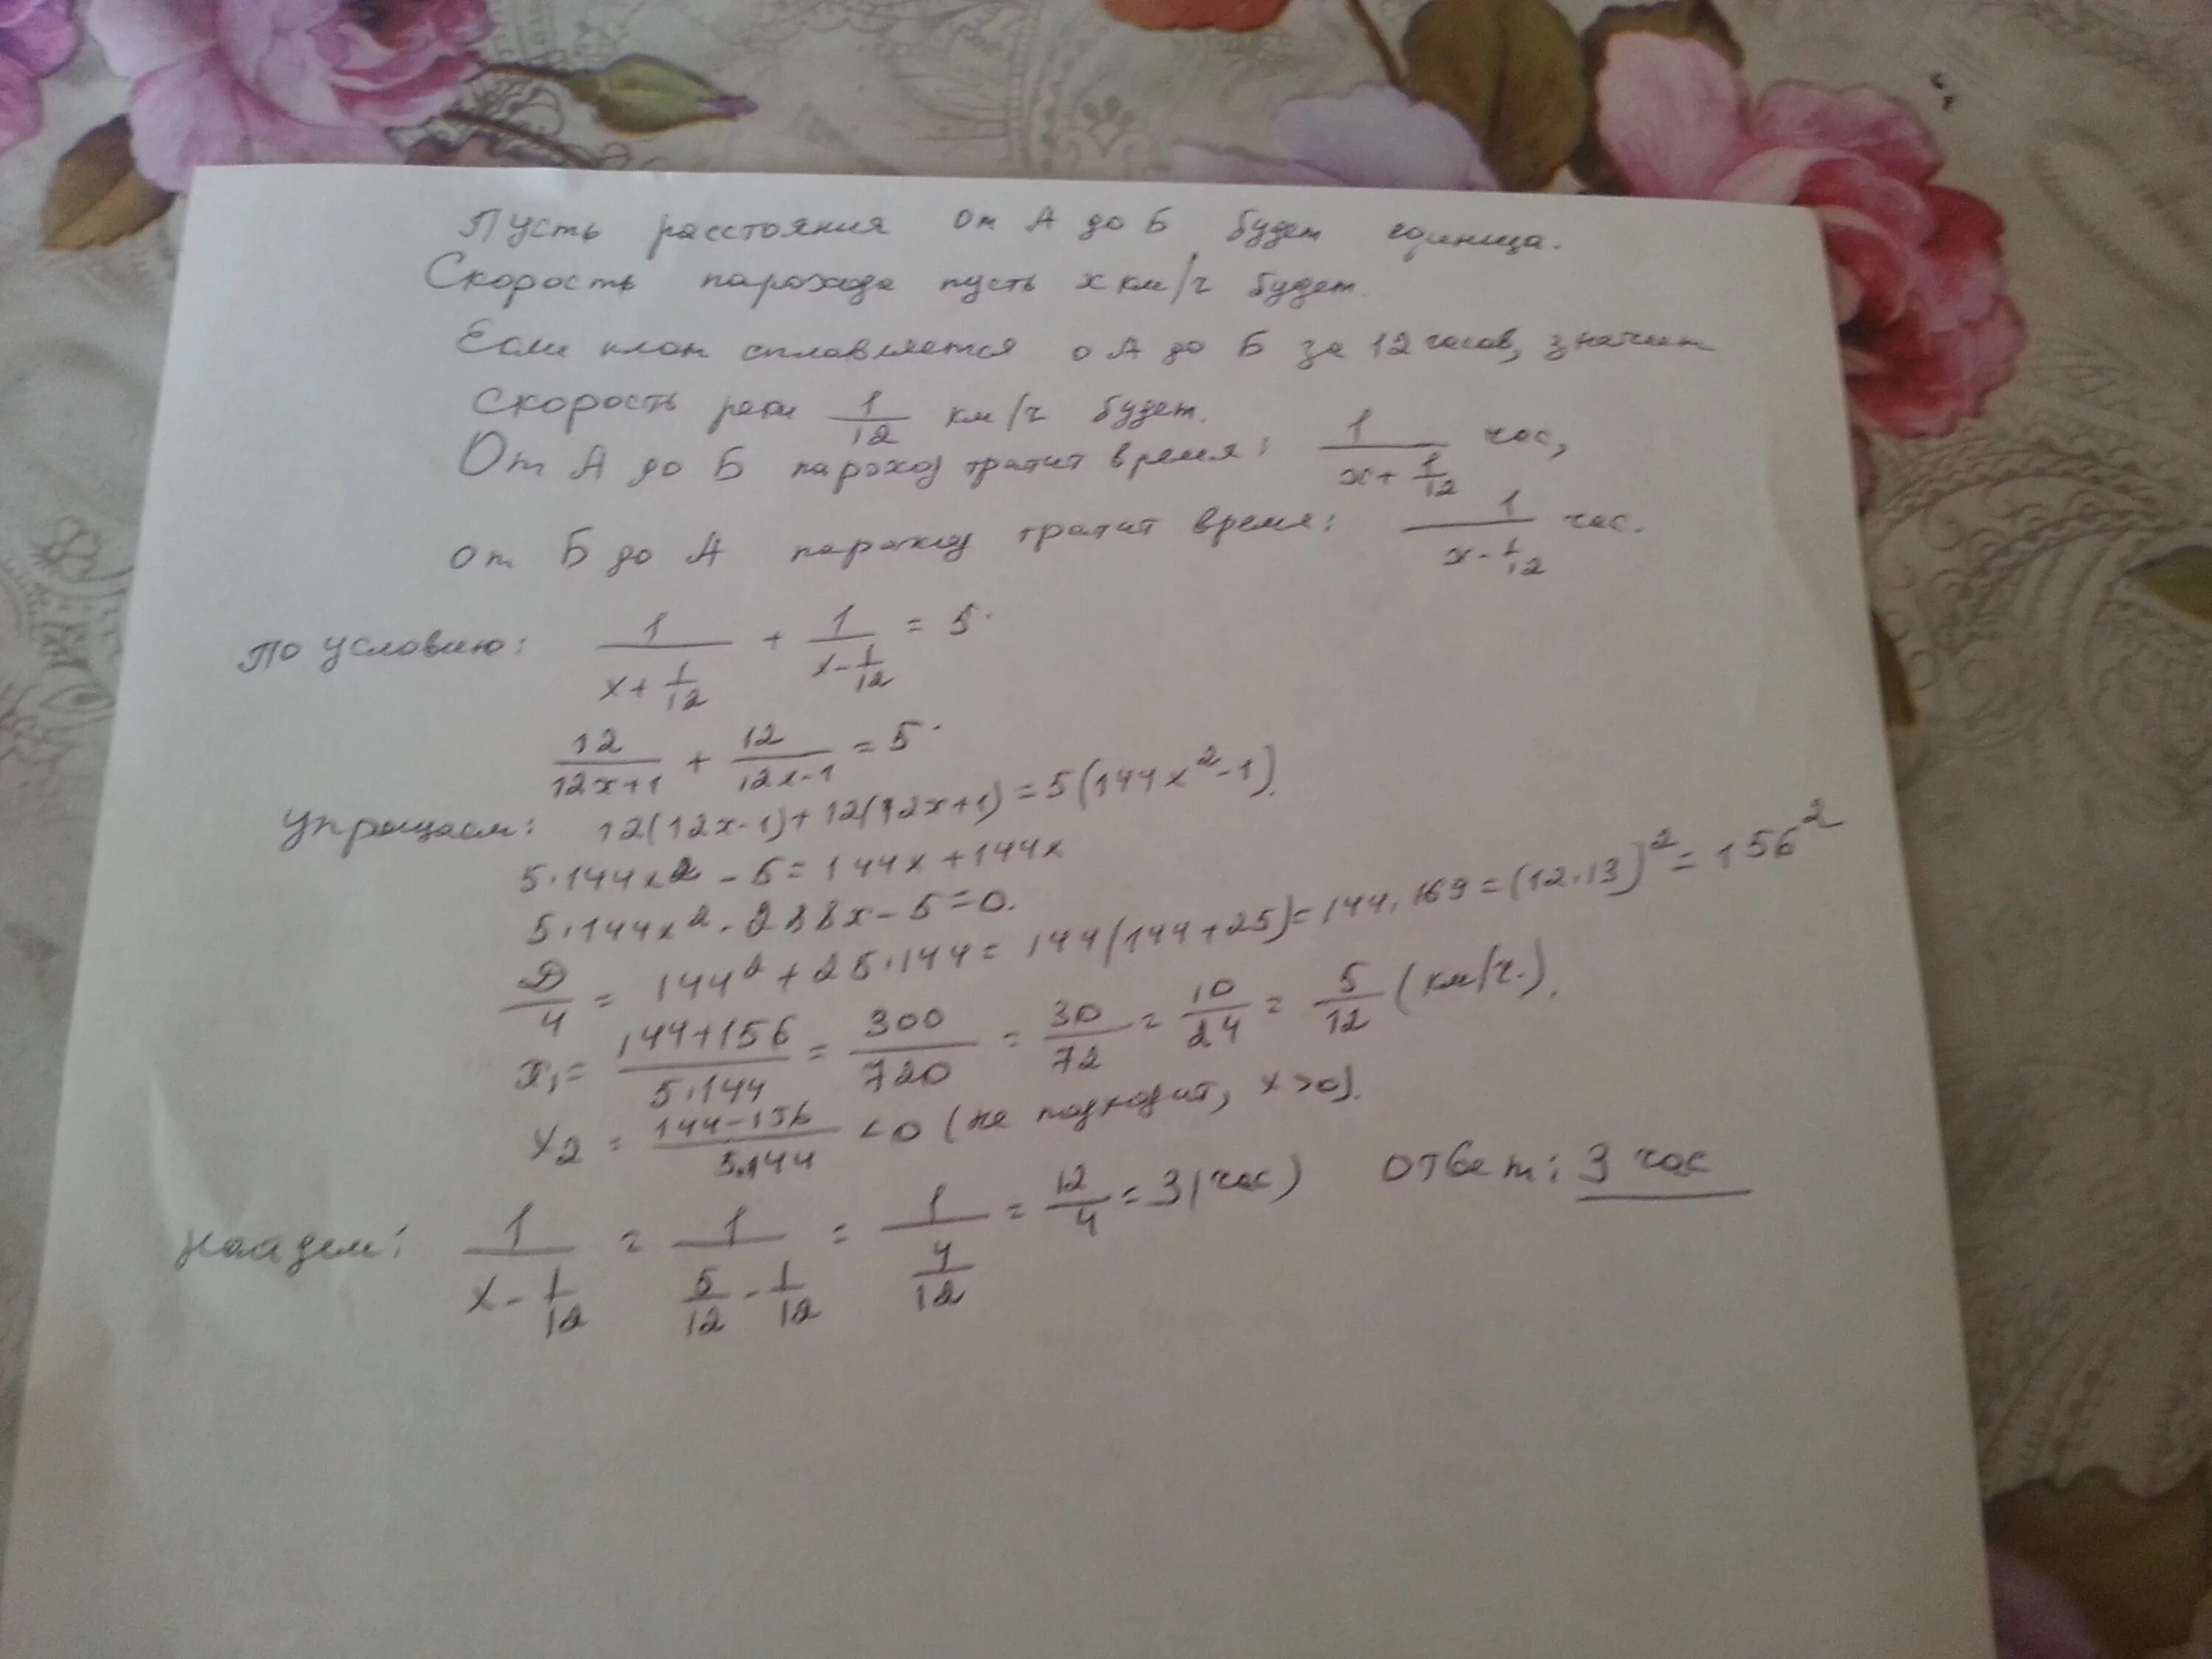 Пусть расстояния от А до Б будет единица.
Скорость парохода пусть x км/ч будет.
Если плот сплавляется о А до Б за 12 часов, значит
скорость реки 1/12 км/ч будет.
От А до Б пароход тратит время: 1/(x+1/12) час,
от Б до А пароход тратит время: 1/(x-1/12) час.
По условию: 1/(x+1/12) + 1/(x-1/12) = 5.
12/(12x+1) + 12/(12x-1) = 5.
Упрощаем: 12(12x-1)+12(12x+1)=5(144x²-1).
5·144x² - 5 = 144x + 144x
5·144x² - 288x - 5 = 0.
D/4 = 144² + 25·144 = 144(144+25) = 144·169 = (12·13)² = 156²
x₁ = (144+156)/(5·144) = 300/720 = 30/72 = 10/24 = 5/12 (км/ч.).
x₂ = (144-156)/(5·144) < 0 (не подходит, x>0).
Найдем: 1/(x-1/12) = 1/(5/12-1/12) = 1/(4/12) = 12/4 = 3(час) Ответ: 3 час